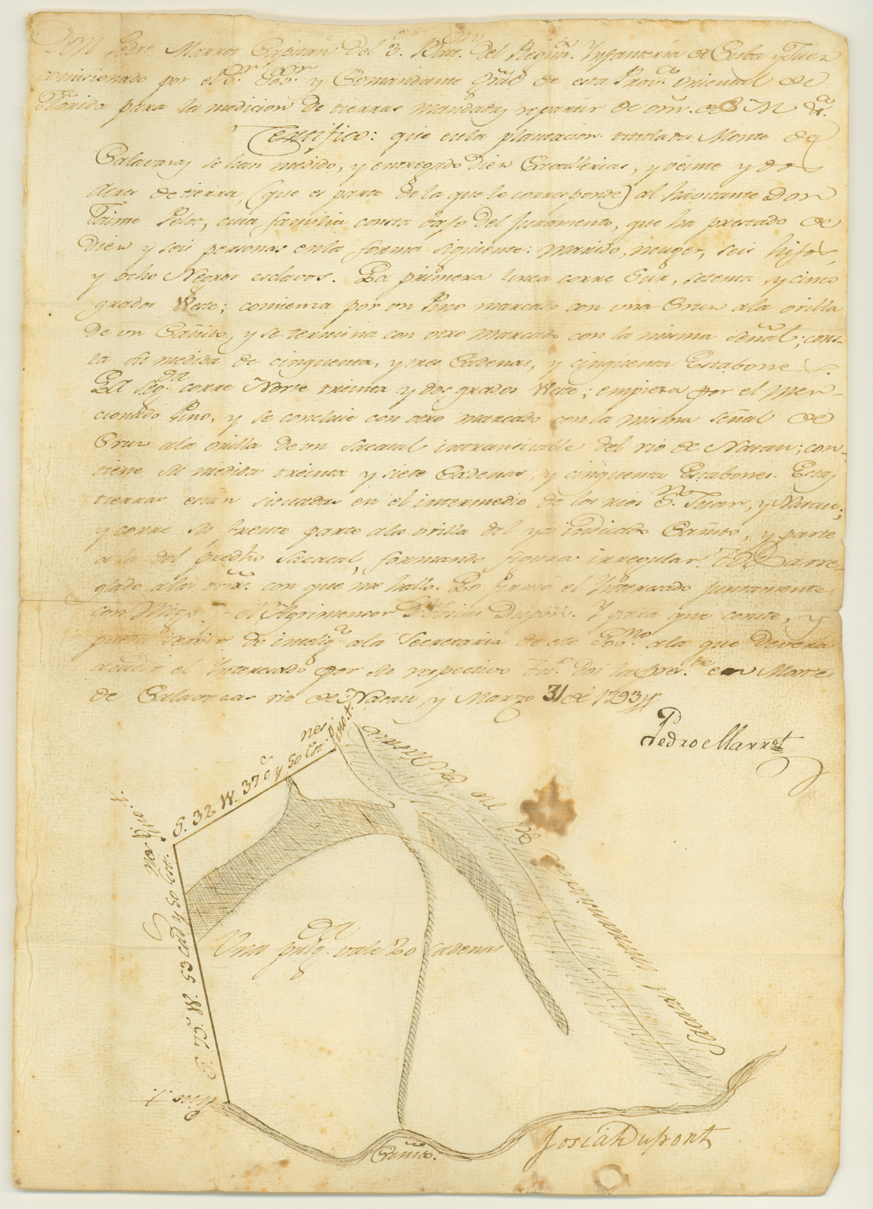 DON Pedro Marrot Capitan del 3.º Bat.ⁿ del Regim.to Infanteria de Cuba y Juez
comisionado por el S.ʳ Gov.ʳ y Comandante gral de esta Prov.ª oriental de
Florida para la medicion de tierras mandadas repartir de orn. de S M &ª.
Certifico: que en la plantacion titulada Monte de
Calabazas se han medido, y entregado Diez Cavallerias, y veinte y dos
Acres de tierra (que es parte de la que le corresponde) al havitante Don
Jaime cuia familia consta bajo del Juramento, que ha prestado de
Diez y seis personas en la forma siguiente: marido, muger, seis hijos,
y ocho Negros esclavos. La primera linea corre Sur, setenta, y cinco
grados Weste; comienza por un Pino marcado con una Cruz ala orilla
de un Cañito, y se termina con otro Marcado con la misma señal; cons-
ta su medida de cinquenta, y tres Cadenas, y cinquenta Estabones
La Seg.da corre Norte treinta y dos grados Weste; empieza por el men-
cionado Pino, y se concluie con otro marcado con la misma señal de
Cruz ala orilla de un Sacatal intransitable del rio de Nasau; con-
tiene su medida treinta y siete Cadenas, y cinquenta Estabones. Estas
tierras estan situadas en el intermedio de los rios S.ⁿ Juan, y Nasau;
y corre su frente parte ala orilla del ya indicado Cañito, y parte
ala del predho Sacatal, formando figura irregular. arre-
glado alas con que me hallo. Lo firmó el Interesado juntamente
con Migo y el Agrimensor D.ⁿ Josias Dupont. Y para que conste, y
pueda servir de intelig.ª ala Secretaria de este Gov.no ala que devera
acudir el Interesado por su respectivo doi la pres.te en Monte
de Calabazas rio de Nasau, y Marzo 31 de 1793
Pedro Marrot
Pino. †.
S. 32. W. 37 c y 50 Est.
Pino. †.
S. 75. W. 53 Cad y 50 Est.
Pino. †.
Sacatal intransitable del rio de Nasau
Escala
Una pulg. vale 20 cadenas
Cañito.
Josiah Dupont